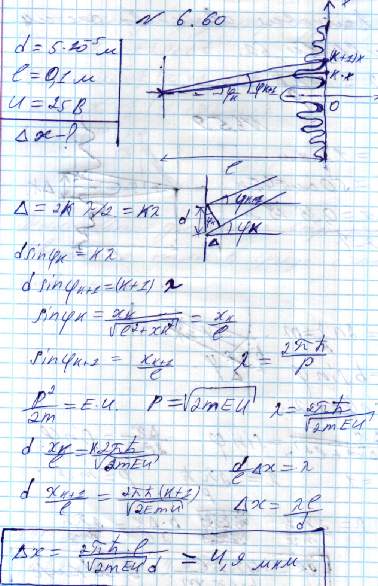 N 6.60
d = 5·10⁻⁵ м
l = 0,1 м
U = 25 В
Δx - ?
x
(k+1)x
k·x
0
φk
φk+1
l
Δ = 2k λ/2 = kλ
d
φk+1
φk
Δ
d sinφk = kλ
d sinφk+1 = (k+1) λ
sinφk = xk/√(l²+xk²) = xk/l
sinφk+1 = xk+1/l    λ = 2πħ/p
p²/2m = E·U.    p = √(2mEU)    λ = 2πħ/√(2mEU)
d xk/l = k2πħ/√(2mEU)    d/l Δx = λ
d xk+1/l = 2πħ(k+1)/√(2EmU)    Δx = λl/d
Δx = 2πħ·l/(√(2mEU) d) = 4,9 мкм